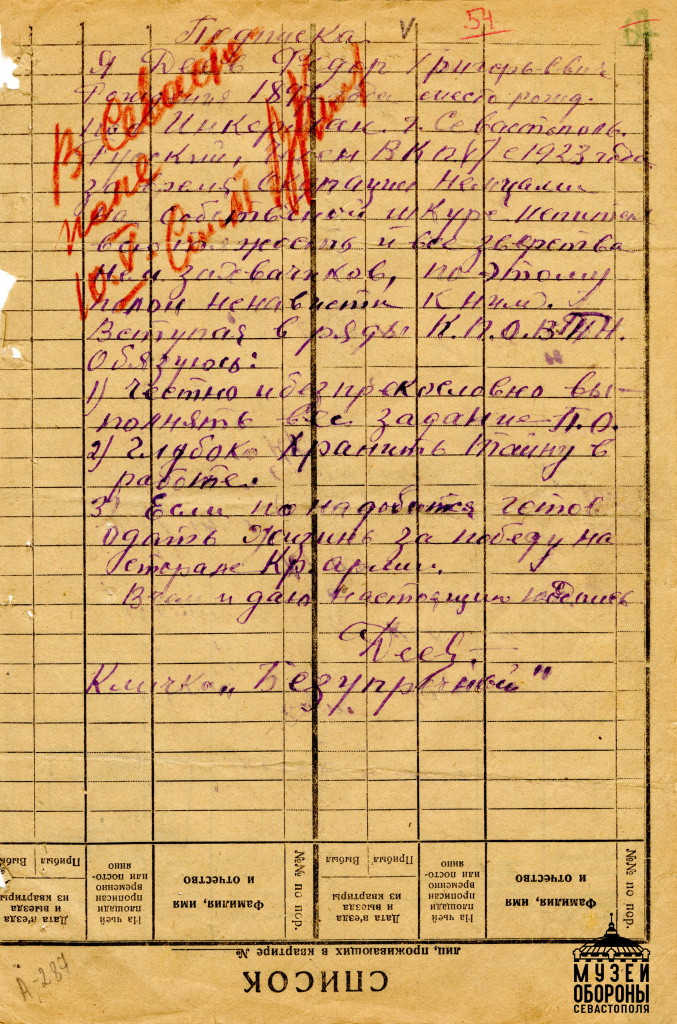 Подписка
V
54
Я Деев Федор Григорьевич
Рождения место рожд.
Инкерман. г. Севастополь.
Русский, член ВКП(б) с 1923 года
за время окупации немцами
на собственной шкуре испытал
всю тяжость и все зверства
нем захвачиков, по этому
полон ненависти к ним.
Вступая в ряды К.П.О.В.Т.Н.
Обязуюсь:
1) Честно и безпрекословно вы-
полнять все задание П.О.
2) Глубоко хранить тайну в
работе.
3) Если понадобится готов
отдать жизнь за победу на
стороне Кр. армии.
В чем и даю настоящую подпись
Деев.
Кличка „Безупречный"
В Севасто
поле
№№ по пор.
Фамилия, имя
и отчество
На чьей
площади
прописан
временно
или посто-
янно
Дата в'езда
и выезда
из квартиры
Прибыл
Выбыл
№№ по пор.
Фамилия, имя
и отчество
На чьей
площади
прописан
временно
или посто-
янно
Дата в'езда
и выезда
из квартиры
Прибыл
лиц, проживающих в квартире №
СПИСОК
А-287
МУЗЕЙ
ОБОРОНЫ
СЕВАСТОПОЛЯ